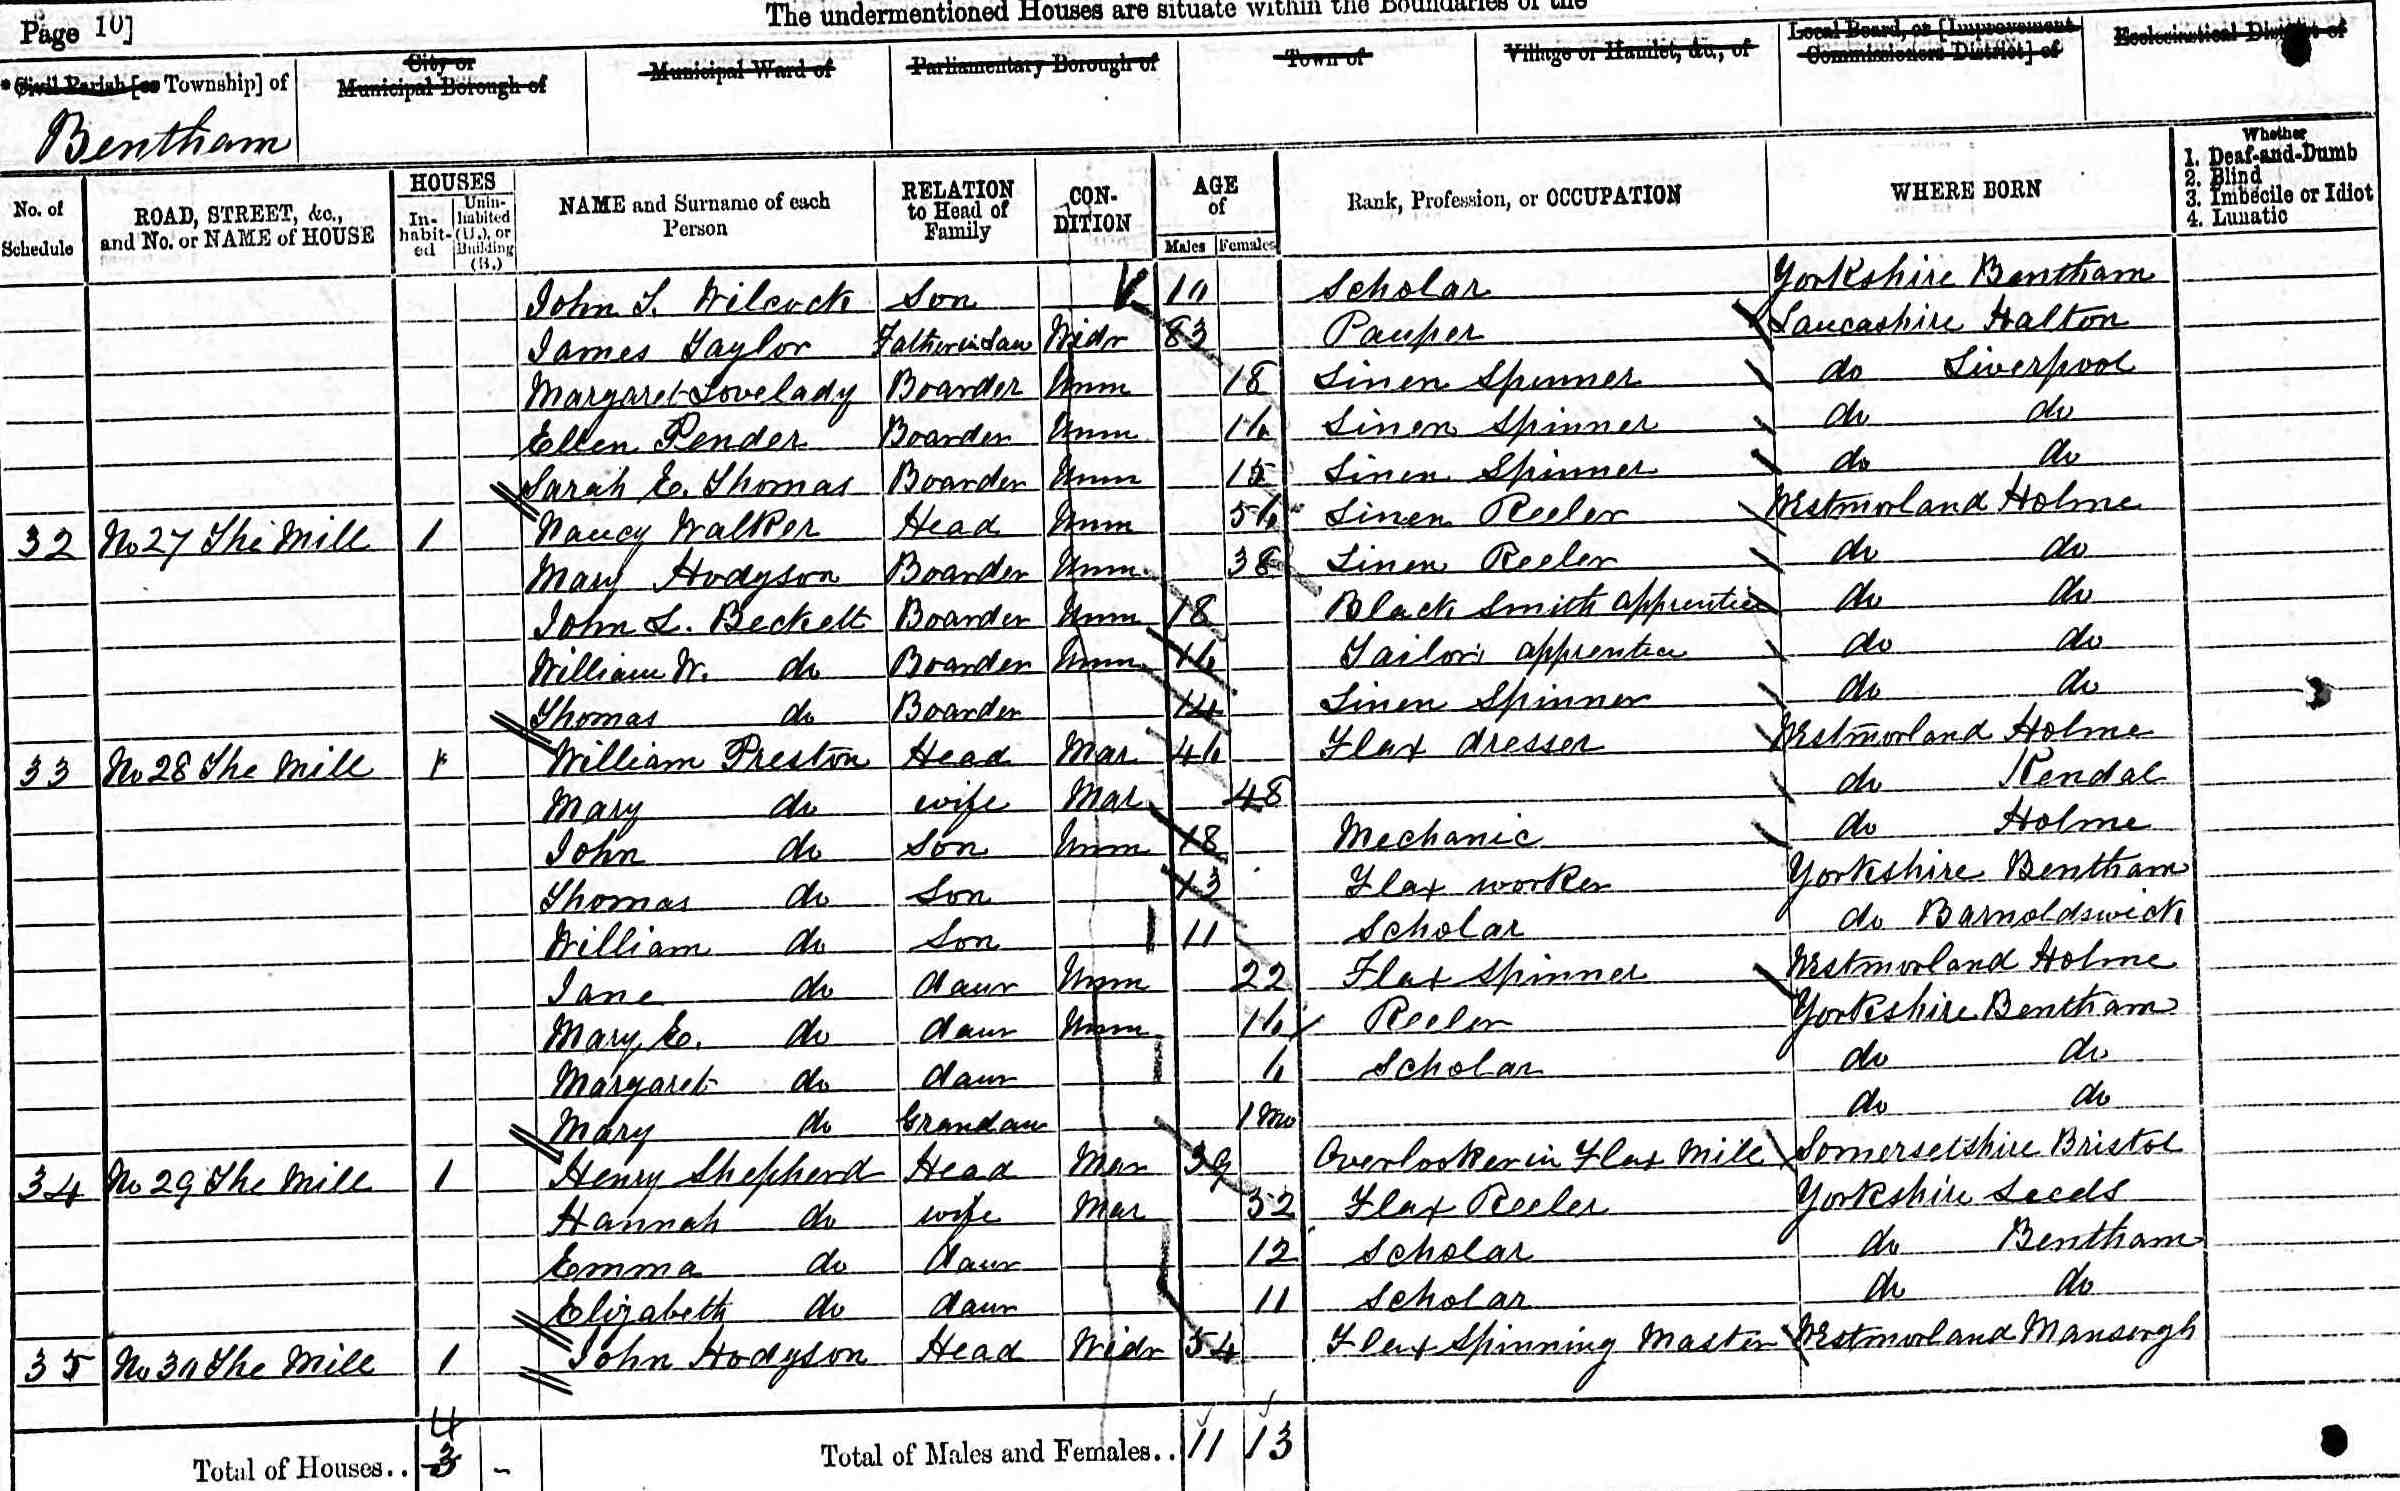 Page 10]
The undermentioned Houses are situate within the Boundaries of the
* Civil Parish [or Township] of | City or Municipal Borough of | Municipal Ward of | Parliamentary Borough of | Town of | Village or Hamlet, &c., of | Local Board, or [Improvement Commissioners District] of | Ecclesiastical District of
Bentham
No. of Schedule | ROAD, STREET, &c., and No. or NAME of HOUSE | HOUSES Inhabited | Uninhabited (U.), or Building (B.) | NAME and Surname of each Person | RELATION to Head of Family | CONDITION | AGE of Males | Females | Rank, Profession, or OCCUPATION | WHERE BORN | Whether 1. Deaf-and-Dumb 2. Blind 3. Imbecile or Idiot 4. Lunatic
John T. Wilcock Son 10 Scholar Yorkshire Bentham
James Taylor Father in Law Widr 83 Pauper Lancashire Halton
Margaret Lovelady Boarder Unm 18 Linen Spinner do Liverpool
Ellen Pender Boarder Unm 16 Linen Spinner do do
Sarah E. Thomas Boarder Unm 15 Linen Spinner do do
32 No 27 The Mill 1 Nancy Walker Head Unm 56 Linen Reeler Westmorland Holme
Mary Hodgson Boarder Unm 38 Linen Reeler do do
John L. Beckett Boarder Unm 18 Black Smith apprentice do do
William W. do Boarder Unm 16 Tailors apprentice do do
Thomas do Boarder 14 Linen Spinner do do
33 No 28 The Mill 1 William Preston Head Mar 46 Flax dresser Westmorland Holme
Mary do wife Mar 48 do Kendal
John do Son Unm 18 Mechanic do Holme
Thomas do Son 13 Flax worker Yorkshire Bentham
William do Son 11 Scholar do Barnoldswick
Jane do daur Unm 22 Flax Spinner Westmorland Holme
Mary E. do daur Unm 16 Reeler Yorkshire Bentham
Margaret do daur 6 Scholar do do
Mary do Grandaur 1 mo do do
34 No 29 The Mill 1 Henry Shepherd Head Mar 39 Overlooker in Flax Mill Somersetshire Bristol
Hannah do wife Mar 32 Flax Reeler Yorkshire Leeds
Emma do daur 12 Scholar do Bentham
Elizabeth do daur 11 Scholar do do
35 No 30 The Mill 1 John Hodgson Head Widr 54 Flax Spinning Master Westmorland Mansergh
4
Total of Houses.. 3 - Total of Males and Females.. 11 13